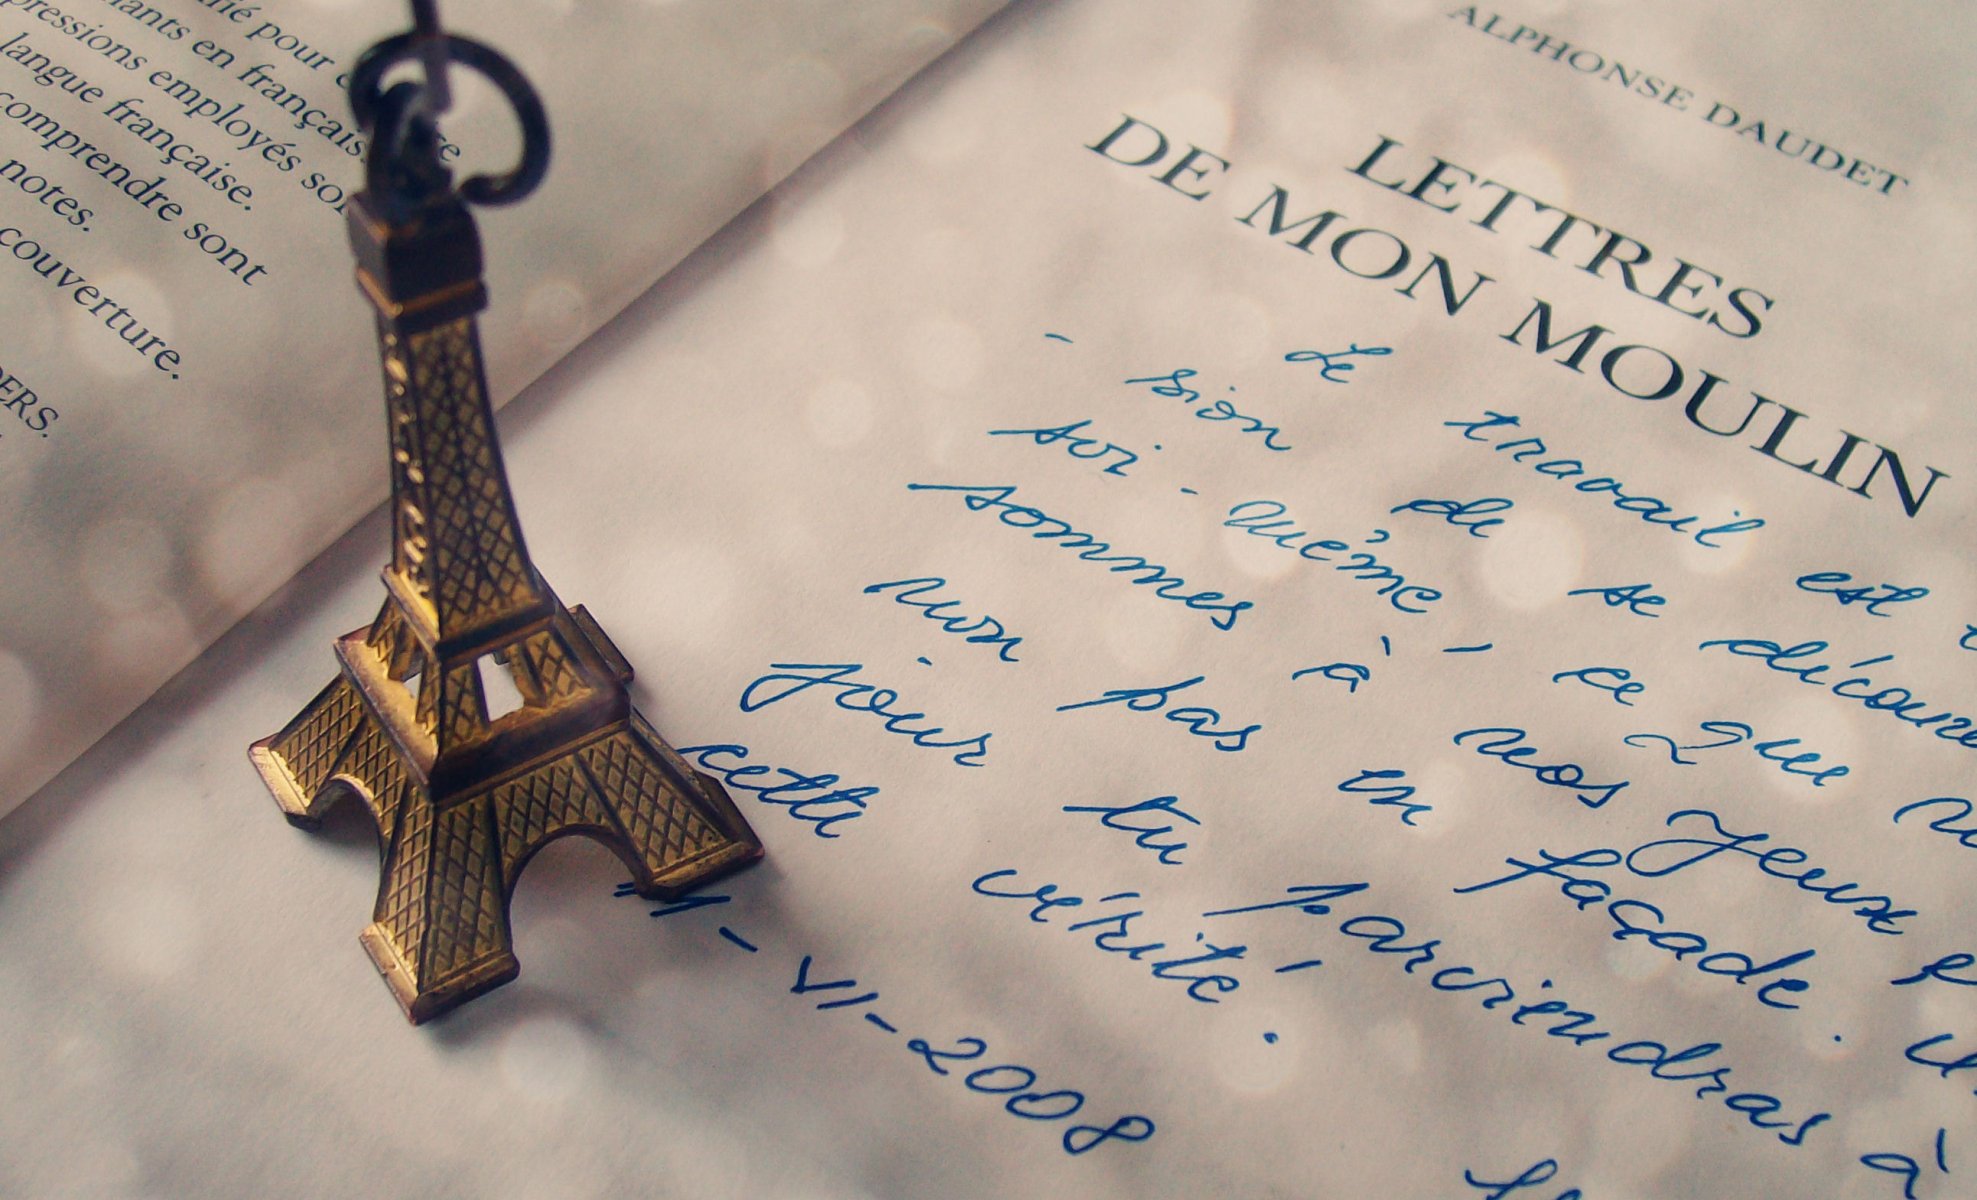 pour
en français
pressions employés
langue française.
comprendre sont
notes.
couverture.
ERS.
ALPHONSE DAUDET
LETTRES
DE MON MOULIN
Le travail est
- sion de se découvr
soi-même, ce que
sommes à nos yeux
non pas en façade. Un
jour tu parviendras à
cette vérité.
11-VII-2008